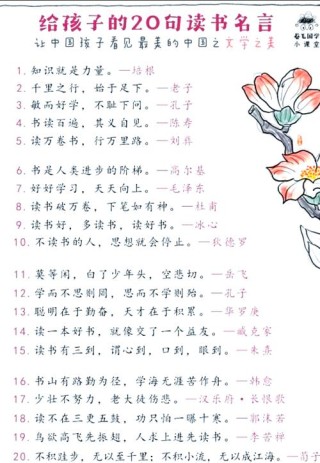 给孩子的20句读书名言
让中国孩子看见最美的中国之文学之美
1. 知识就是力量。—培根
2. 千里之行，始于足下。—老子
3. 敏而好学，不耻下问。—孔子
4. 书读百遍，其义自见。—陈寿
5. 读万卷书，行万里路。—刘彝
6. 书是人类进步的阶梯。—高尔基
7. 好好学习，天天向上。—毛泽东
8. 读书破万卷，下笔如有神。—杜甫
9. 读书好，多读书，读好书。—冰心
10. 不读书的人，思想就会停止。—狄德罗
11. 莫等闲，白了少年头，空悲切。—岳飞
12. 学而不思则罔，思而不学则殆。—孔子
13. 聪明在于勤奋，天才在于积累。—华罗庚
14. 读一本好书，就像交了一个益友。—臧克家
15. 读书有三到，谓心到，口到，眼到。—朱熹
16. 书山有路勤为径，学海无涯苦作舟。—韩愈
17. 少壮不努力，老大徒伤悲。—汉乐府·长恨歌
18. 读不在三更五鼓，功只怕一曝十寒。—郭沫若
19. 鸟欲高飞先振翅，人求上进先读书。—李苦禅
20. 不积跬步，无以至千里；不积小流，无以成江海。—荀子